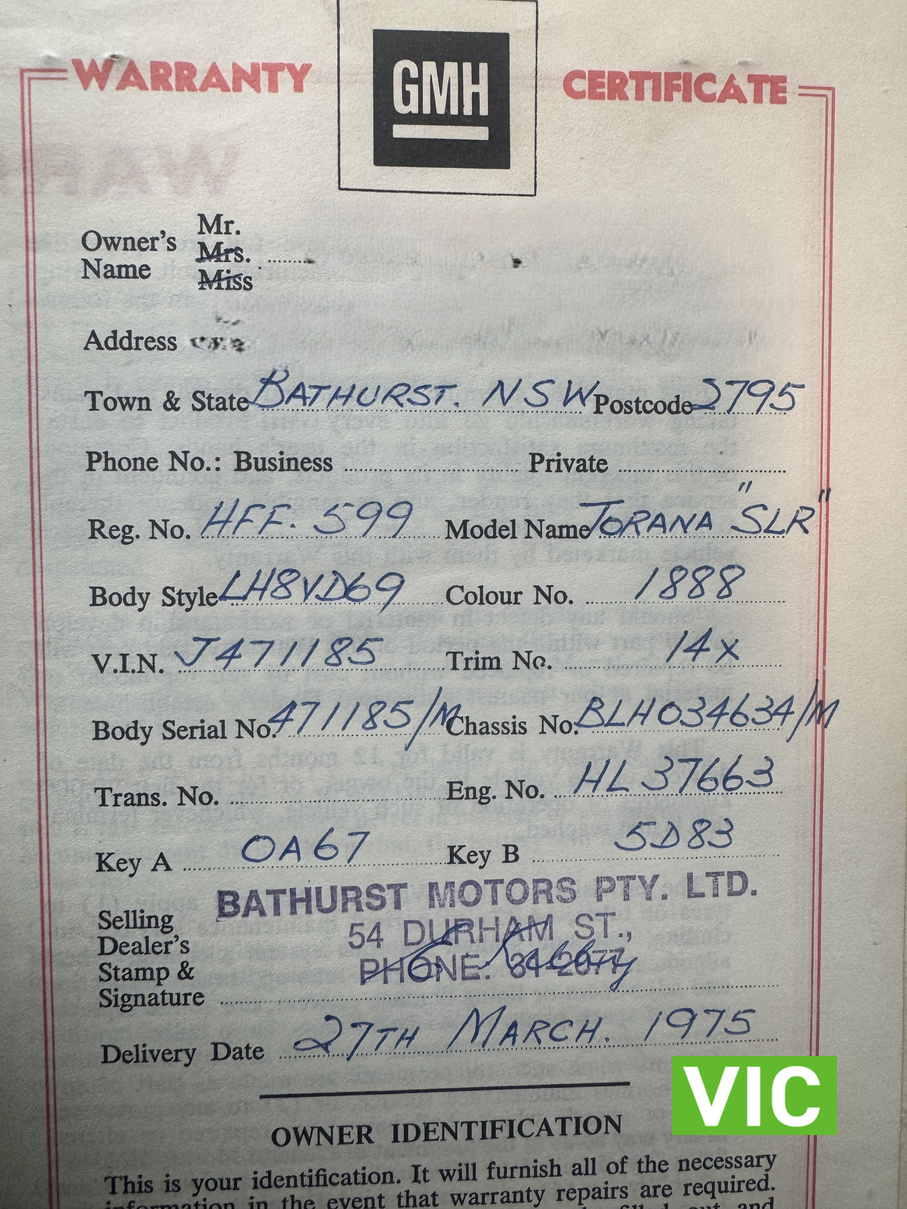 WARRANTY GMH CERTIFICATE
Mr.
Owner's Mrs.
Name Miss
Address
Town & State BATHURST. NSW Postcode 2795
Phone No.: Business Private
Reg. No. HFF. 599 Model Name TORANA "SLR"
Body Style LH8VD69 Colour No. 1888
V.I.N. J471185 Trim No. 14X
Body Serial No. 471185/M Chassis No. BLH034634/M
Trans. No. Eng. No. HL 37663
Key A OA67 Key B 5D83
BATHURST MOTORS PTY. LTD.
Selling 54 DURHAM ST.,
Dealer's
Stamp & PHONE:
Signature
Delivery Date 27TH MARCH. 1975
VIC
OWNER IDENTIFICATION
This is your identification. It will furnish all of the necessary
information in the event that warranty repairs are required.